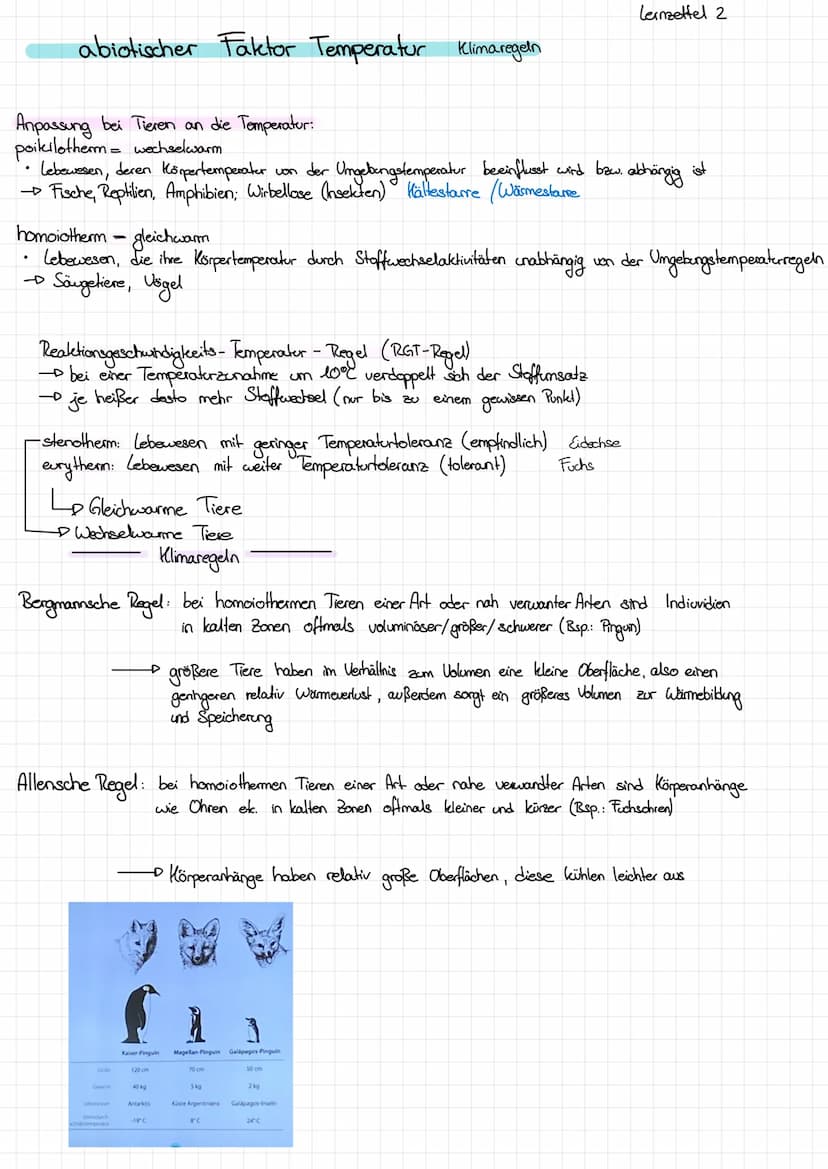 Lernzettel 2
abiotischer Faktor Temperatur Klimaregeln
Anpassung bei Tieren an die Temperatur:
poikilotherm = wechselwarm
• Lebewesen, deren Körpertemperatur von der Umgebungstemperatur beeinflusst wird bzw. abhängig ist
→ Fische, Reptilien, Amphibien; Wirbellose (Insekten) Kältestarre / Wärmestarre
homoiotherm – gleichwarm
• Lebewesen, die ihre Körpertemperatur durch Stoffwechselaktivitäten unabhängig von der Umgebungstemperaturregeln
→ Säugetiere, Vögel
Reaktionsgeschwindigkeits-Temperatur-Regel (RGT-Regel)
→ bei einer Temperaturzunahme um 10°C verdoppelt sich der Stoffumsatz
→ je heißer desto mehr Stoffwechsel (nur bis zu einem gewissen Punkt)
stenotherm: Lebewesen mit geringer Temperaturtoleranz (empfindlich) Eidechse
eurytherm: Lebewesen mit weiter Temperaturtoleranz (tolerant) Fuchs
→ Gleichwarme Tiere
→ Wechselwarme Tiere
Klimaregeln
Bergmannsche Regel: bei homoiothermen Tieren einer Art oder nah verwanter Arten sind Indiuvidien
in kalten Zonen oftmals voluminöser/größer/schwerer (Bsp.: Pinguin)
→ größere Tiere haben im Verhältnis zum Volumen eine kleine Oberfläche, also einen
geringeren relativ Wärmeverlust, außerdem sorgt ein größeres Volumen zur Wärmebildung
und Speicherung
Allensche Regel: bei homoiothermen Tieren einer Art oder nahe verwandter Arten sind Körperanhänge
wie Ohren etc. in kalten Zonen oftmals kleiner und kürzer (Bsp.: Fuchsohren)
→ Körperanhänge haben relativ große Oberflächen, diese kühlen leichter aus
Kaiser-Pinguin Magellan-Pinguin Galápagos-Pinguin
Größe 120 cm 70 cm 50 cm
Gewicht 40 kg 5 kg 2 kg
Lebensraum Antarktis Küste Argentiniens Galápagos-Inseln
-19°C 8°C 24°C